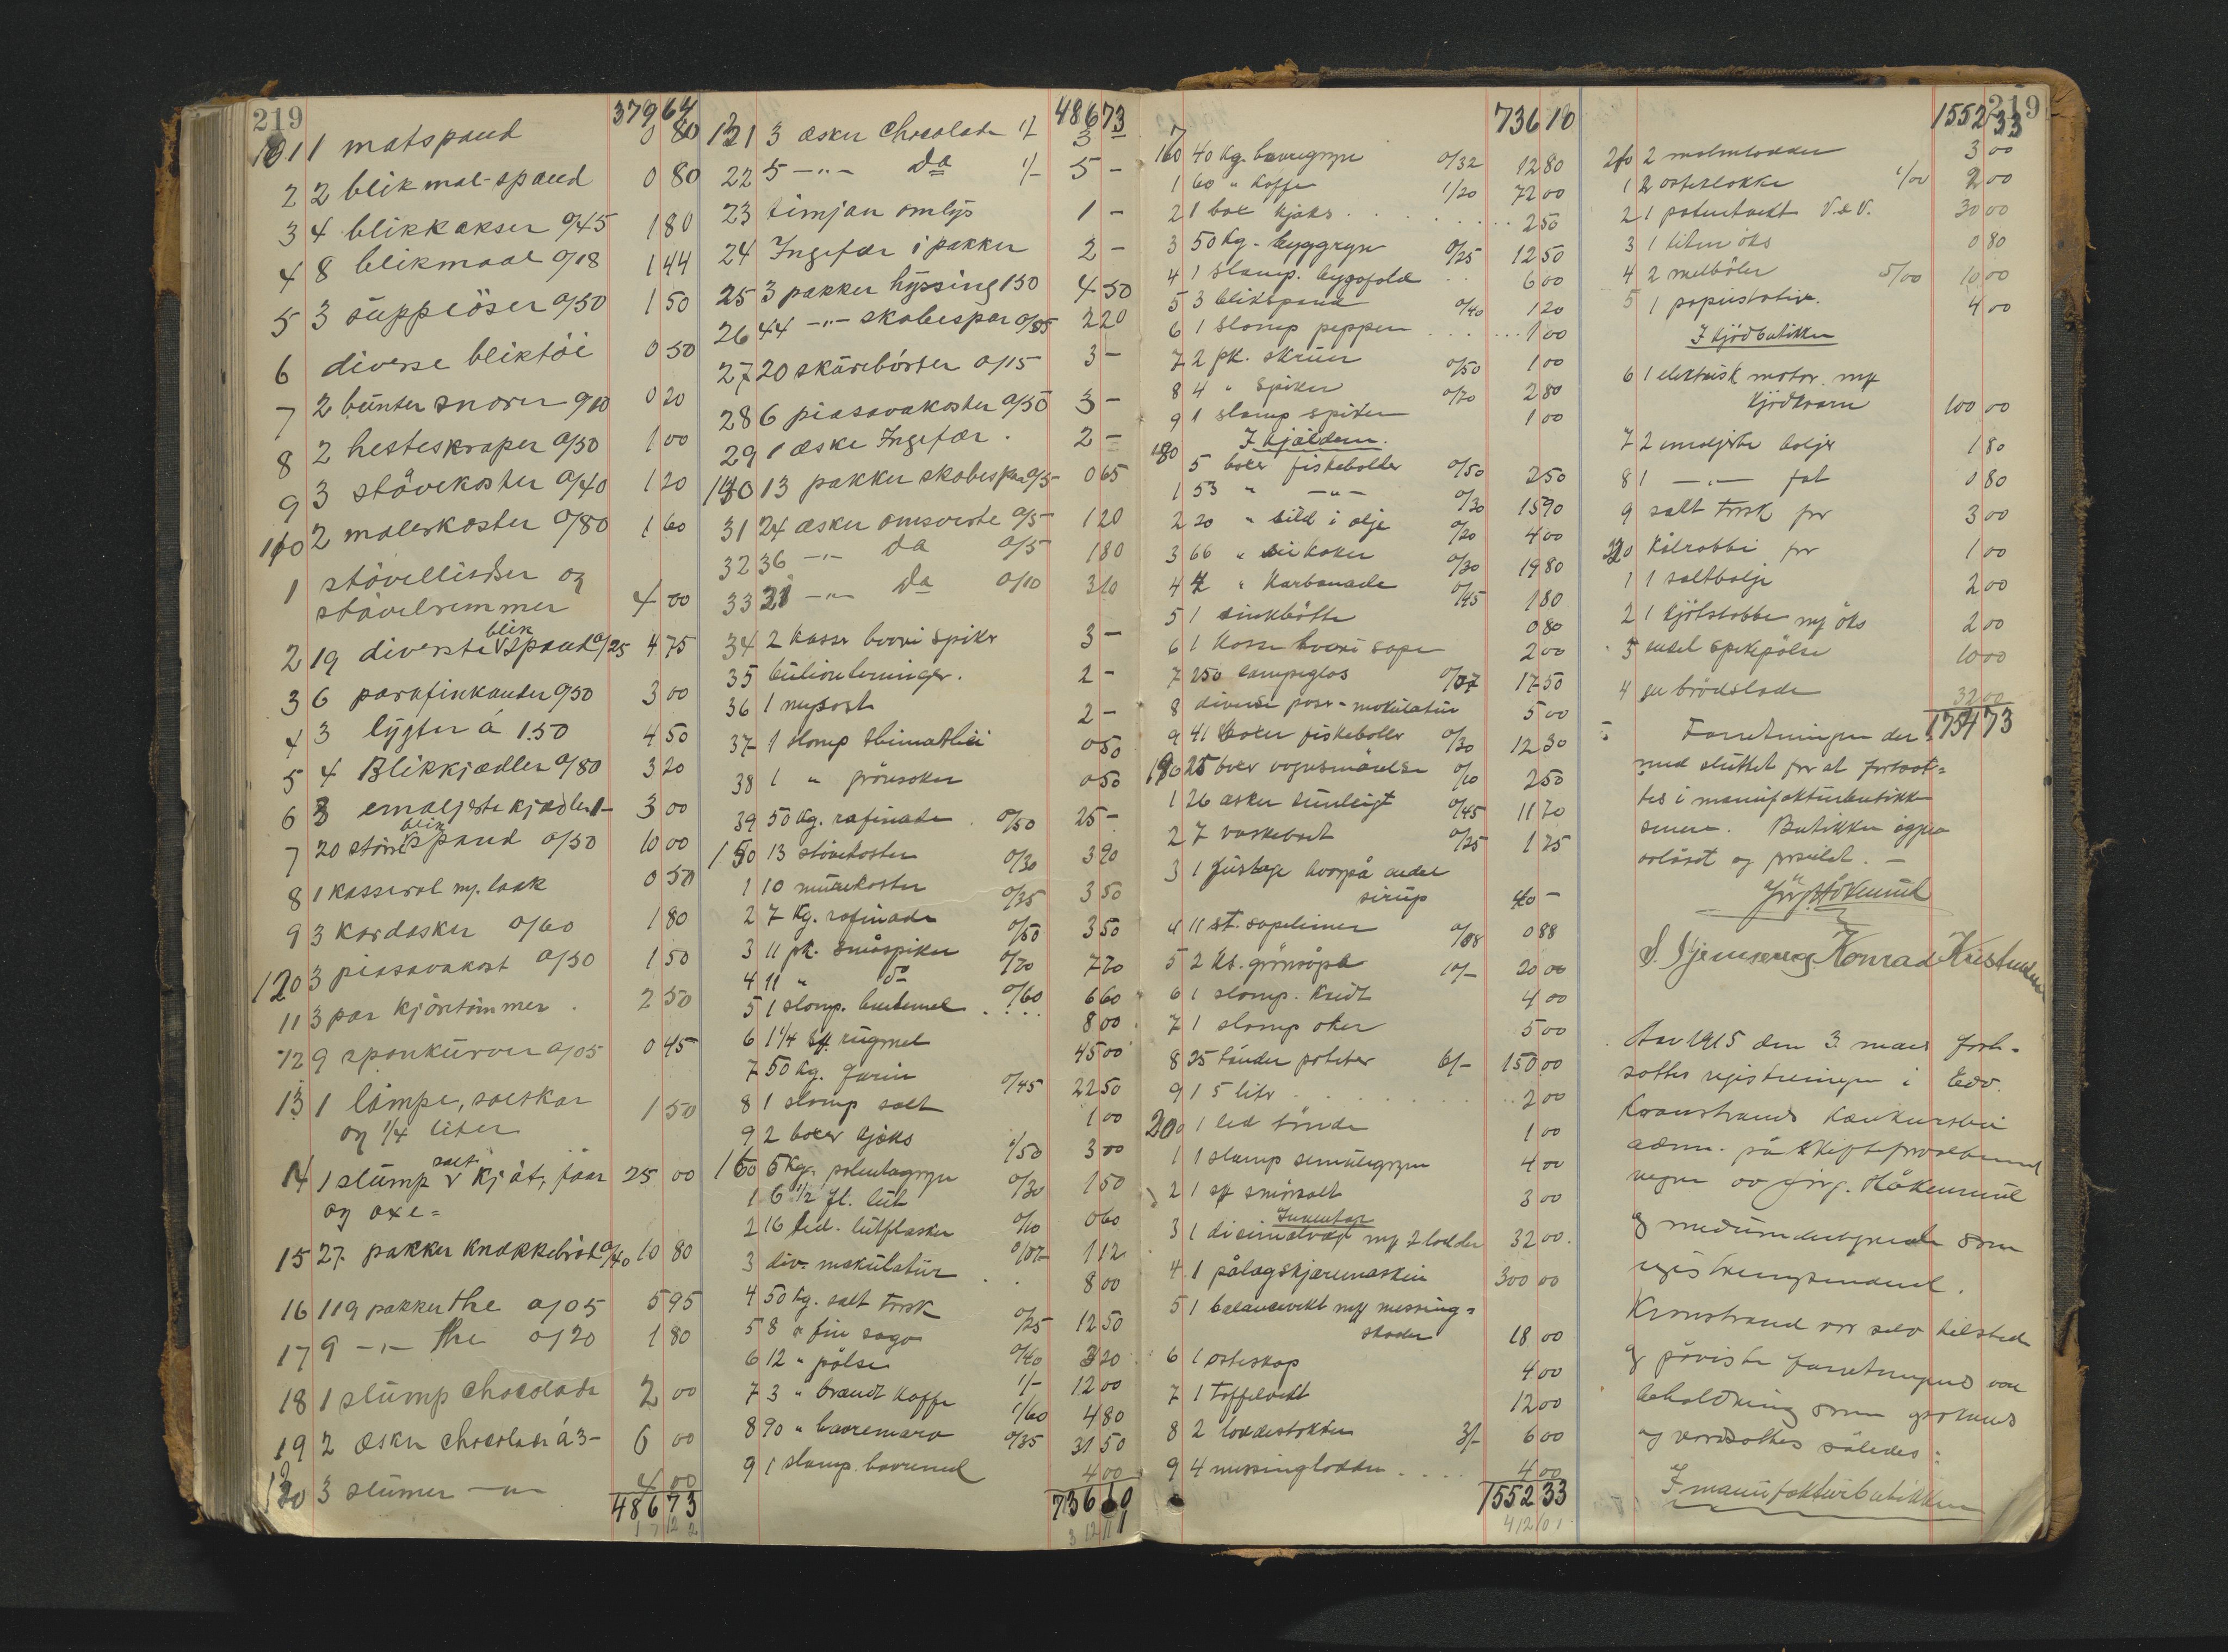 219
379 64
101 1 matspand 0 80
2 2 blik mal-spand 0 80
3 4 blikkakser 0/45 1 80
4 8 blikmaal 0/18 1 44
5 3 suppeöser 0/50 1 50
6 diverse bliktöi 0 50
7 2 bünter snorer 0/10 0 20
8 2 hesteskraper 0/50 1 00
9 3 stövekoster 0/40 1 20
110 2 malerkoster 0/80 1 60
1 stövellisser og
stövelremmer 4 00
blik
2 19 diverse spand 0/25 4 75
3 6 parafinkander 0/50 3 00
4 3 lygter á 1.50 4 50
5 4 Blikkjædler 0/80 3 20
6 3 emaljerte kjædler 1- 3 00
blik
7 20 större spand 0/50 10 00
8 1 kasserol m/ laak 0 50
9 3 kardasker 0/60 1 80
120 3 piasavakost 0/50 1 50
11 3 par kjöretömmer . 2 50
12 9 sponkürver 0/05 0 45
13 1 lampe, saltkar 1 50
og 1/4 liter
salt
14 1 slump kjöt, faar 25 00
og oxe=
15 27 pakker knækkebröd 0/40 10 80
16 119 pakker the 0/05 5 95
17 9 -"- the 0/20 1 80
18 1 slump chocolade 2 00
19 2 æsker chocolade á 3- 6 00
120 3 slumer -"- 4 00
486 73
486 73
121 3 æsker chocolade 1/ 3 -
22 5 -"- da 1/- 5 -
23 timjan omlys 1 -
24 Ingefær i pakker 2 -
25 3 pakker hyssing 150 4 50
26 44 -"- skabespar 0/05 2 20
27 20 skürebörster 0/15 3 -
28 6 piasavakoster 0/50 3 -
29 1 æske Ingefær . 2 -
130 13 pakker skabespar 0/5 0 65
31 24 æsker omsverte 0/5 1 20
32 36 -"- da 0/5 1 80
33 31 -"- da 0/10 3 10
34 2 kasser hvori spiker 3 -
35 büliontерninger. 2 -
36 1 mysost 2 -
37 1 slomp 0 50
38 1 " grönsoker 0 50
39 50 kg. rafinade . 0/50 25 -
150 13 stövekoster 0/30 3 90
1 10 mürekoster 0/35 3 50
2 7 kg. rafinade 0/50 3 50
3 11 pk. småspiker 0/70 7 70
4 11 " do 0/60 6 60
5 1 slomp. 8 00
6 1 1/4 sk. rügmel 45 00
7 50 kg. farin 0/45 22 50
8 1 slomp salt 1 00
9 2 boxer kjæks 1/50 3 00
160 5 kg. polentagryn 0/30 1 50
1 6 1/2 fl. lüt 0/10 0 60
2 16 led. lütflasker 0/07 1 12
3 div. makülatür 8 00
4 50 kg. salt torsk 0/25 12 50
5 8 " fin sago 0/40 3 20
6 12 " pölse 1/- 12 00
7 3 " brændt kaffe 1/60 4 80
8 90 " havremaro 0/35 31 50
9 1 slump. havremel 4 00
736 10
736 10
170 40 kg. havregryn 0/32 12 80
1 60 " kaffe 1/20 72 00
2 1 box kjæks . . . 2 50
3 50 kg. byggryn 0/25 12 50
4 1 slump. . . 6 00
5 3 blikspand 0/40 1 20
6 1 slomp pepper . . . 1 00
7 2 pk. skruer 0/50 1 00
8 4 " spiker 0/70 2 80
9 1 slump spiker 1 00
I kjælderen.
180 5 boxer fiskeboller 0/50 2 50
1 53 " -"- 0/30 15 90
2 20 " sild i olje 0/20 4 00
3 66 " 0/30 19 80
4 4 " karbonade 0/45 1 80
5 1 sinkbötte 0 80
6 1 kasse hvori sope 2 00
7 250 lampeglas 0/07 17 50
8 diverse poser - makülatür 5 00
9 41 boxer fiskeboller 0/30 12 30
190 25 boxer vognsmörelse 0/10 2 50
1 26 æsker sunlight 0/45 11 70
2 7 vaskebret 0/25 1 75
3 1 füstage hvorpå endel
sirup 40 -
4 11 st. 0/08 0 88
5 2 ks. grönsåpe 10/- 20 00
6 1 slomp. kridt 4 00
7 1 slomp oker 5 00
8 25 tönder poteter 6/- 150 00
9 1 5 liter . . . 2 00
200 1 led tönde 1 00
1 1 slump semulegryn 4 00
2 1 sk smörsalt 3 00
Inventar
3 1 disimalvægt m/ 2 lodder 32 00
4 1 pålægskjæremaskin 300 00
5 1 balansevekt m/ messing=
skaaler 18 00
6 1 osteskap 4 00
7 1 toffelvekt 12 00
8 2 loddestokker 3/- 6 00
9 4 messinglodder . . . 4 00
1552 33
219
1552 33
210 2 malmlodder 3 00
1 2 osteklokke 1/00 2 00
2 1 patentvekt V.&V. 30 00
3 1 liten öks 0 80
4 2 melböler 5/00 10 00
5 1 papirstativ. 4 00
I kjödbutikken
6 1 elektrisk motor m/
kjödkvarn 100 00
7 2 emaljerte baljer 1 80
8 1 -"- fat 0 80
9 salt torsk for 3 00
220 kålrabbi for 1 00
1 1 saltbalje 2 00
2 1 kjötstabbe m/ öks 2 00
3 endel spekepölse 10 00
4 en brödslade 32 00
1754 73
Forretningen der=
med sluttet for at fortsæt=
tes i manufakturbutikken
senere. Butikken igjen
avlåset og forseilet. -
Jörg. Håkensmul
S. Stjernseng Konrad Kristensen
Aar 1915 den 3 mars fort-
sattes registreringen i Edv.
Kronstrands konkursbo
adm. på skifteforvalterens
vegne av Jörg. Håkensmul
og medundertegnede som
registreringsmænd.
Kronstrand var selv tilstede
og påviste forretningens vare
beholdning som
og værdsattes således:
I manufakturbutikken